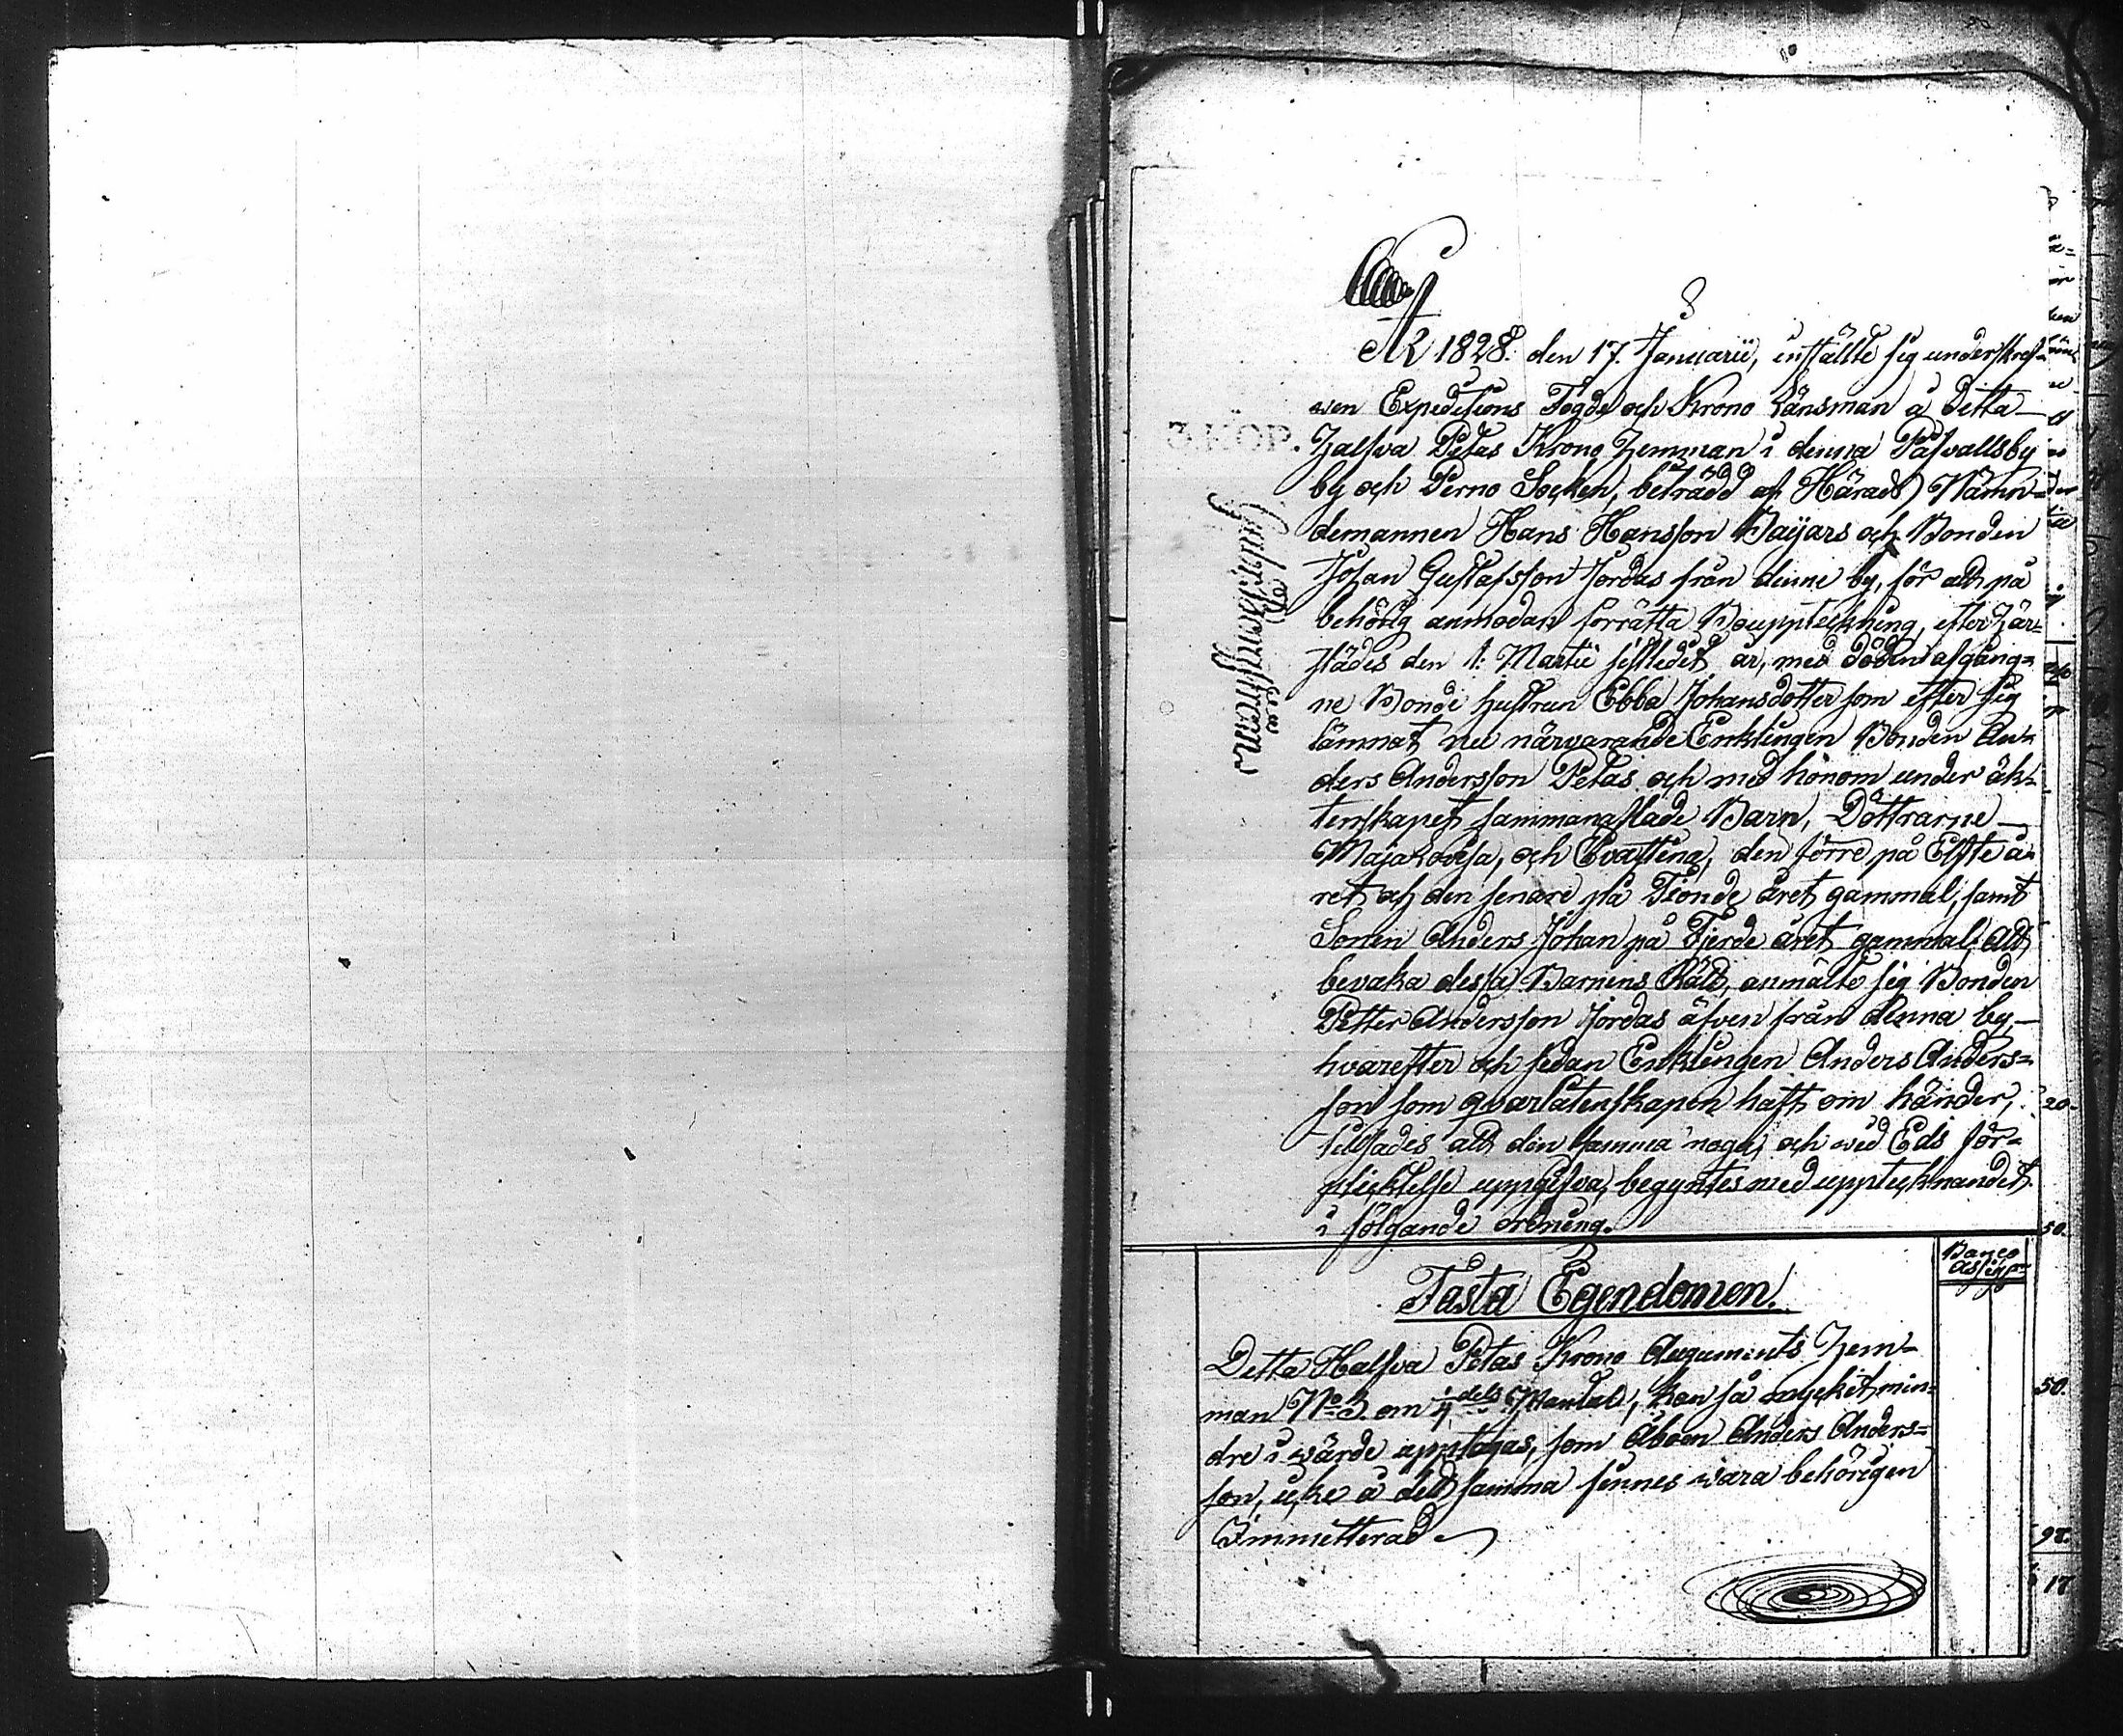 År 1828. den 17. Januarii, inställte sig underskref-
wen Expeditions Fogde och Krono Länsman å Detta
3.KOP.
Halfva Petas Krono Hemman i denna Påsvallsby
by och Perno Socken, beträdd af Härads Nämn=
demannen Hans Hansson Baijars och Bonden
Johan Gustafsson Jordas från denne by, för att på
behörig anmodan förrätta Bouppteckning, efter här=
städes den 1: Martii sistledit år, med döden afgång=
ne Bonde hustrun Ebba Johansdotter som efter sig
lämnat nu närvarande Enklingen Bonden An=
ders Andersson Petas och med honom under äk=
tenskapet sammanaflade Barn, Döttrarne
Maja Lovisa, och Eva Stina, den förre på Elfte å=
ret och den senare på Tionde året gammal, samt
Sonen Anders Johan på Fjerde året gammal. Att
bevaka dessa Barnens Rätt, anmälte sig Bonden
Petter Andersson Jordas äfven från denna by,
hvarefter och sedan Enklingen Anders Anders=
son som qvarlåtenskapen haft om händer,
tillsades att den samma noga, och wid Eds för=
plicktelse uppgifva, begyntes med upptecknandet
i följande ordning.
Banco
Assign
Fasta Egendomen.
Detta Halfva Petas Krono Augments Hem=
man No 3. om 1/4 dels Mantal, kan så mycket min=
dre i wärde upptagas, som Åboen Anders Anders=
son, icke å det samma finnes wara behörigen
Immitterad
20.
50.
50.
92.
17